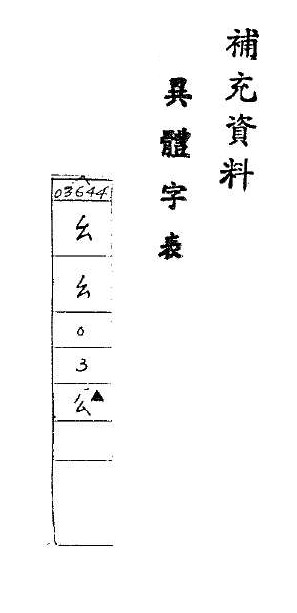 補充資料
異體字表
03644
幺
幺
0
3
㕣▲